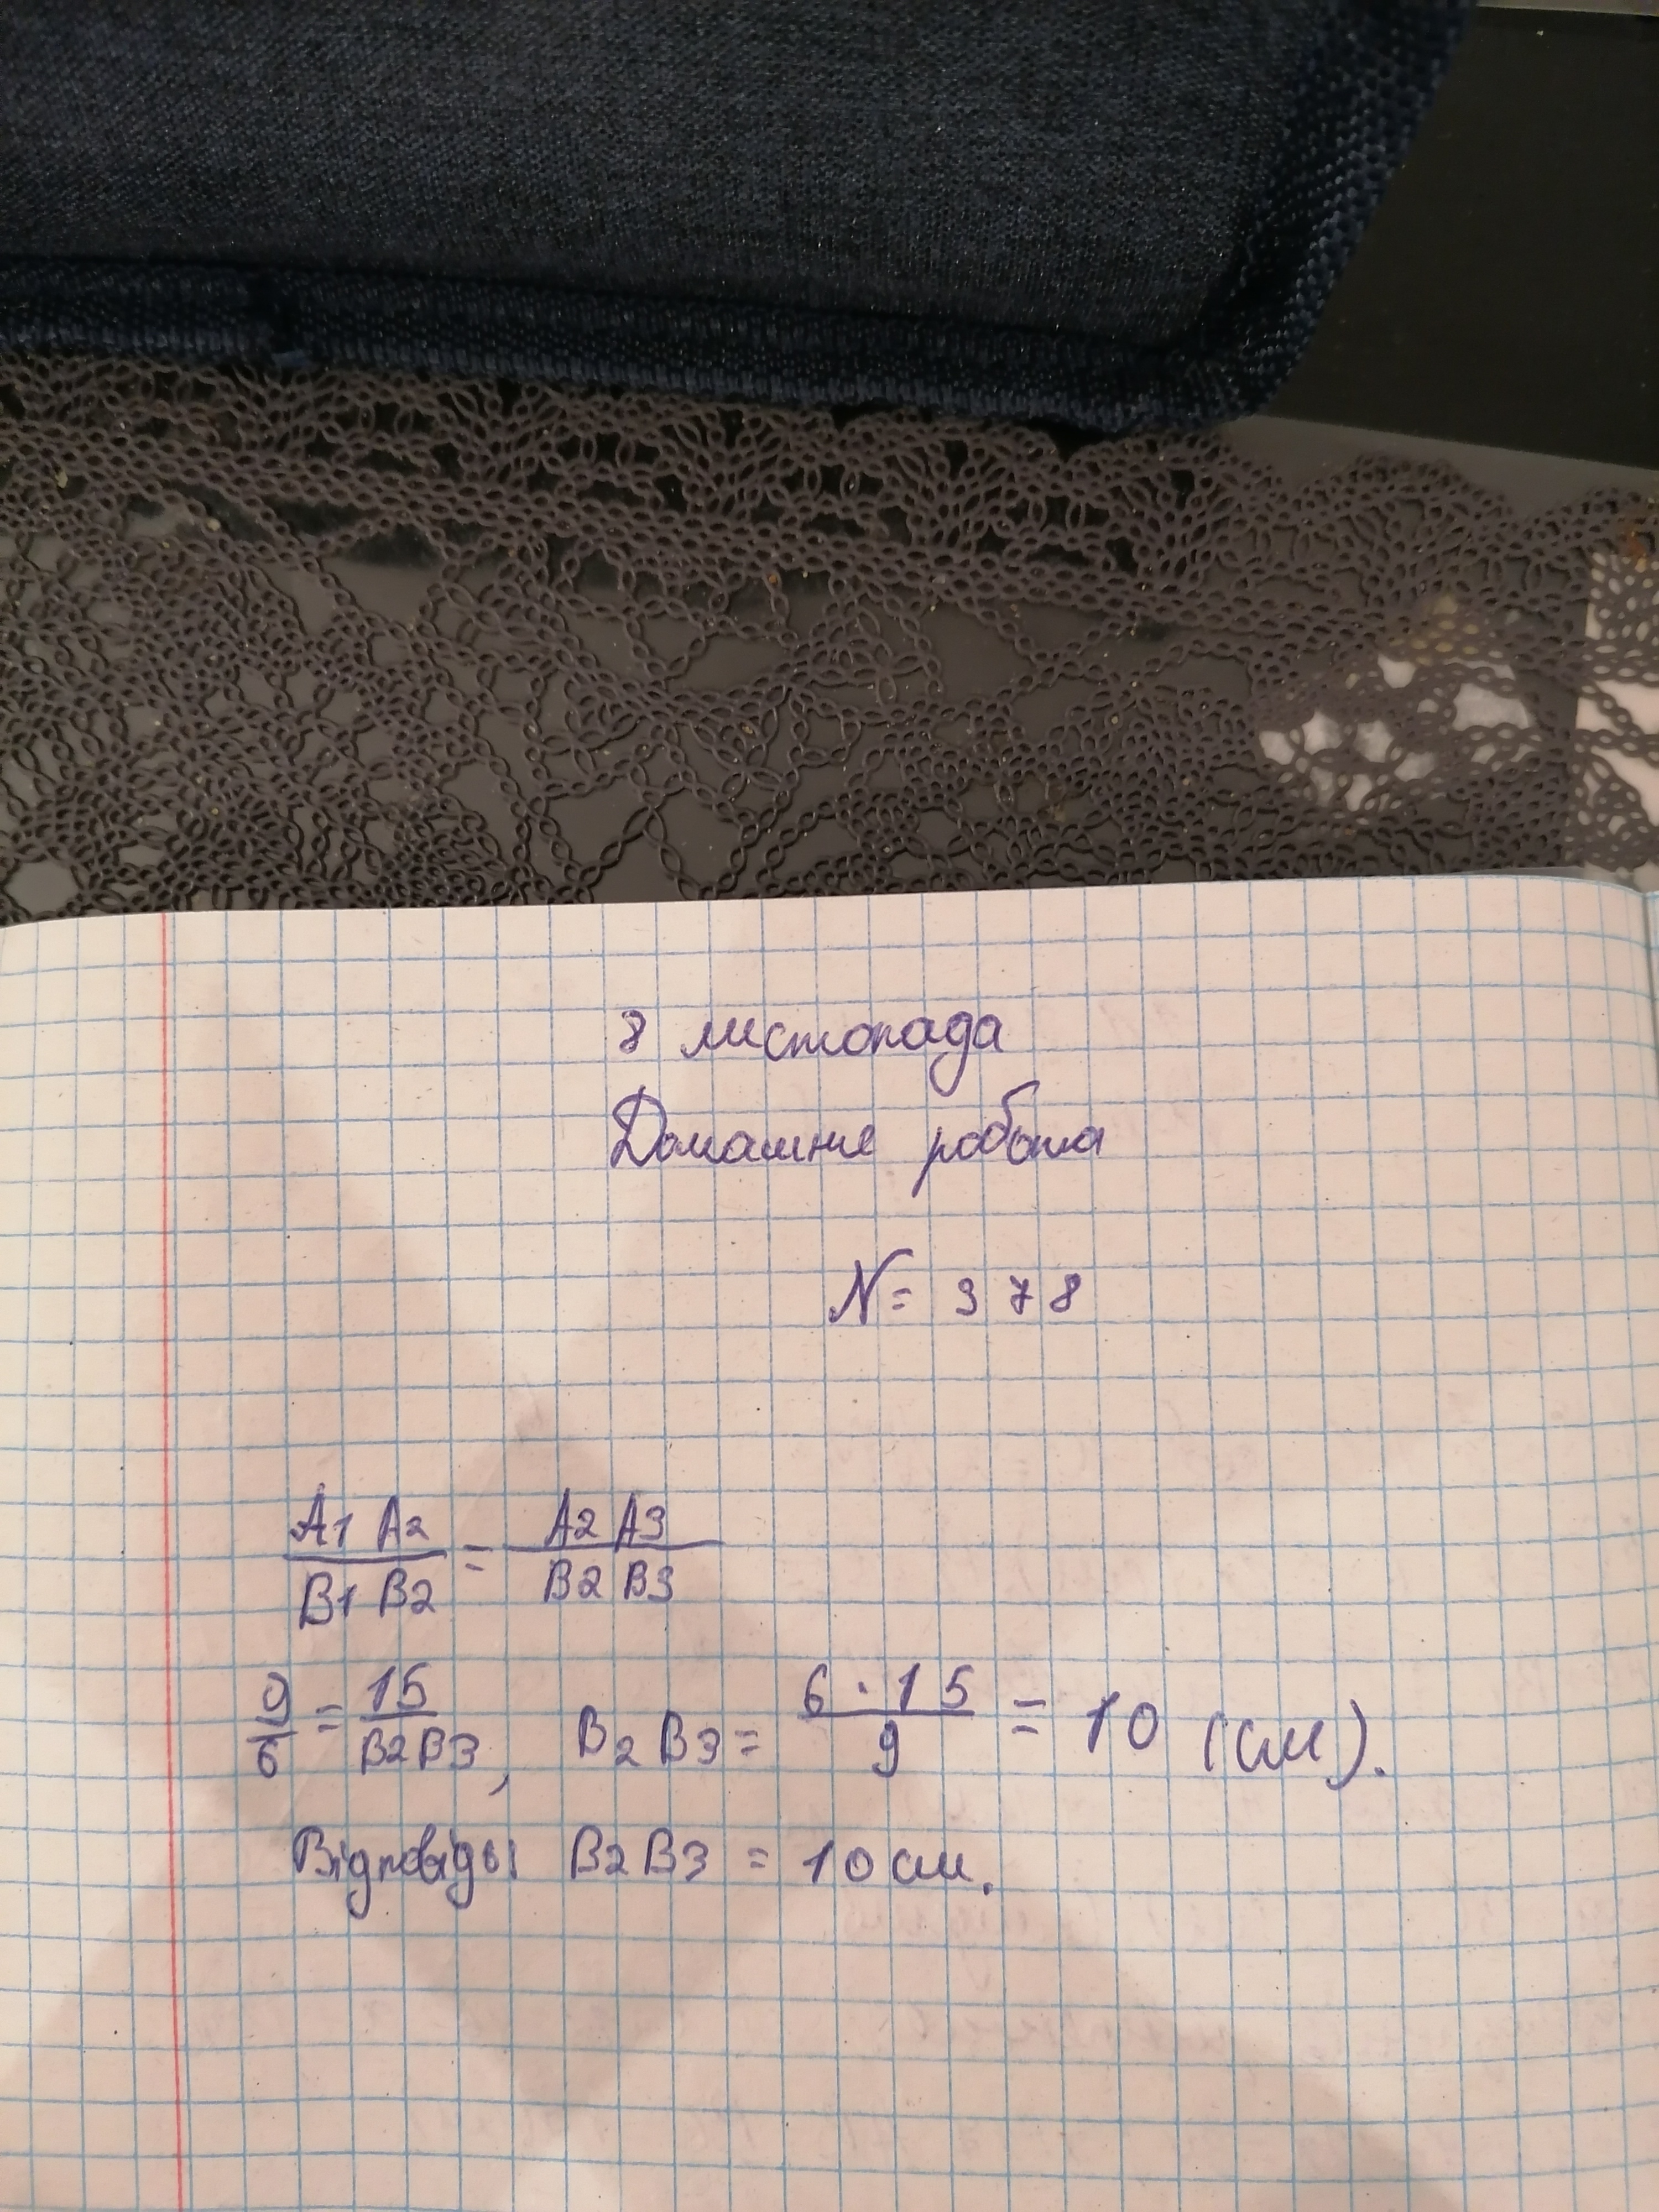 8 листопада
Домашнє робота
N= 378
A1 A2 / B1 B2 = A2 A3 / B2 B3
9/6 = 15 / B2B3, B2 B3 = 6 · 15 / 9 = 10 (см).
Відповідь: B2B3 = 10 см.